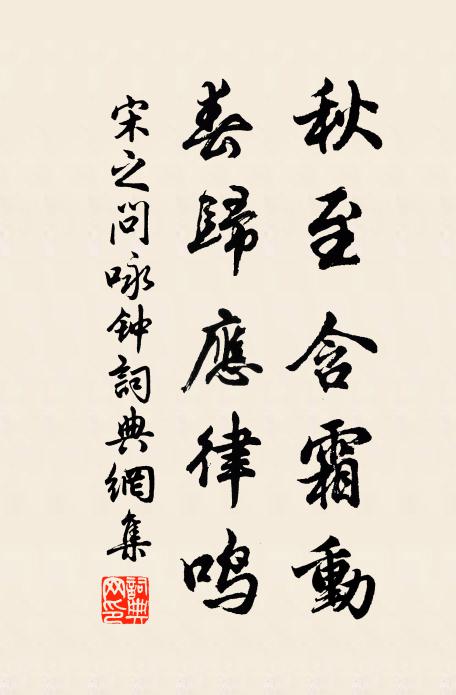 秋至含霜動
春歸應律鳴
宋之问咏钟詞典網集
詞典網印